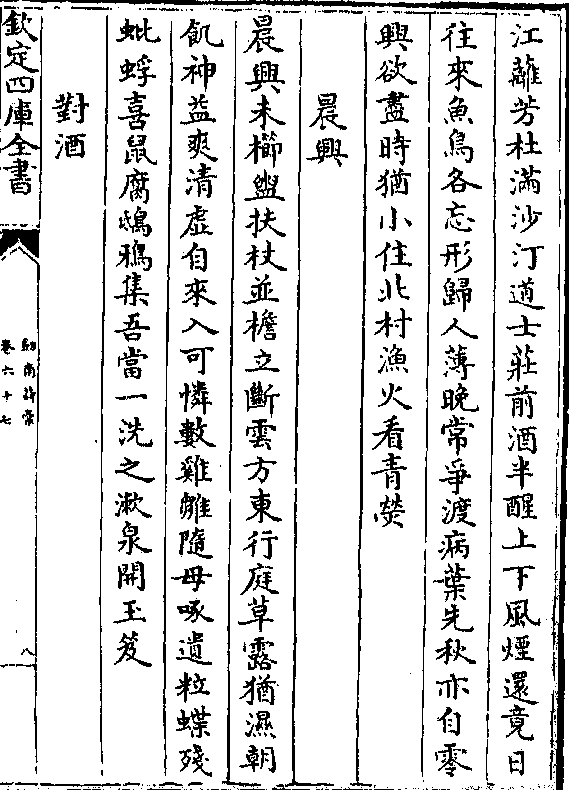 江蘺芳杜滿沙汀道士莊前酒半醒上下風煙還竟日
往來魚鳥各忘形歸人薄晚常爭渡病葉先秋亦自零
興欲盡時猶小住北村漁火看青熒
晨興
晨興未櫛盥扶杖並檐立斷雲方東行庭草露猶濕朝
飢神益爽清虛自來入可憐數雞雛隨母啄遺粒蝶殘
蚍蜉喜鼠腐鴟鴉集吾當一洗之漱泉開玉笈
對酒
欽定四庫全書
劒南詩稾
卷六十七
八